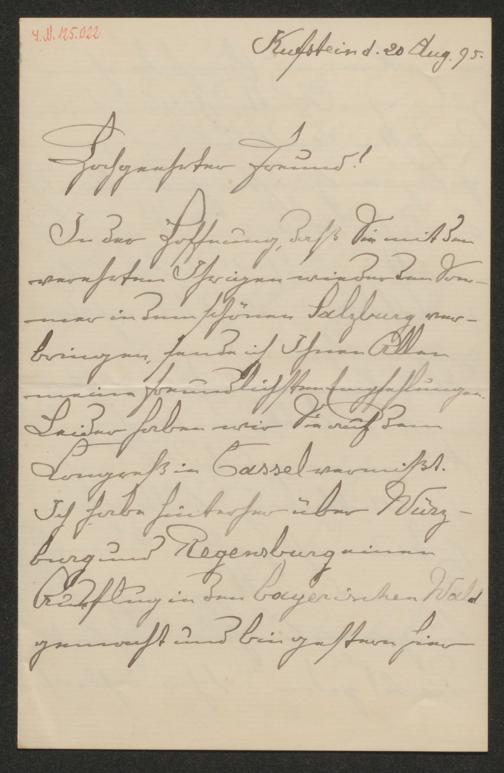 I.N. 125.022
Kufstein d. 20 Aug. 95.
Hochgeehrter Freund!
In der Hoffnung, daß Sie mit den
verehrten Ihrigen wieder den Som-
mer in dem schönen Salzburg ver-
bringen, sende ich Ihnen Allen
meine freundlichsten Empfehlungen.
Leider haben wir Sie auf dem
Congreß in Cassel vermißt.
Ich habe hinterher über Würz-
burg und Regensburg einen
Ausflug in den bayerischen Wald
gemacht und bin gestern hier